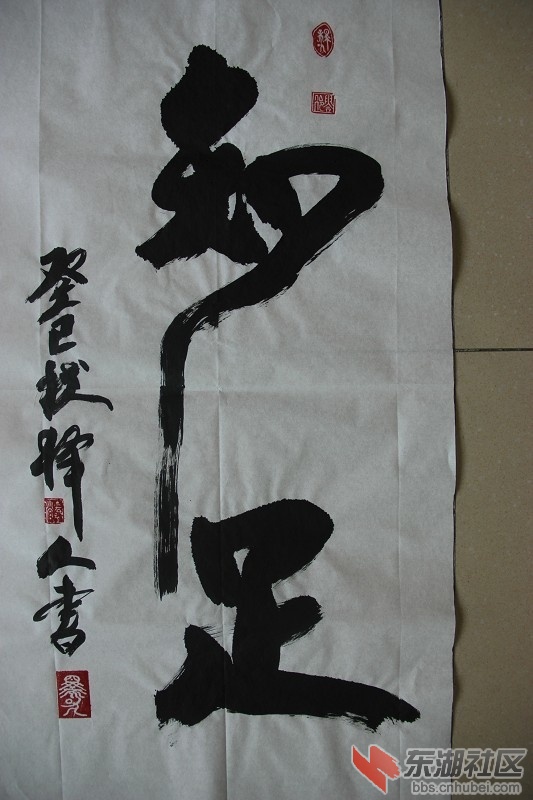 知足
癸巳秋
人书
东湖社区
bbs.cnhubei.com